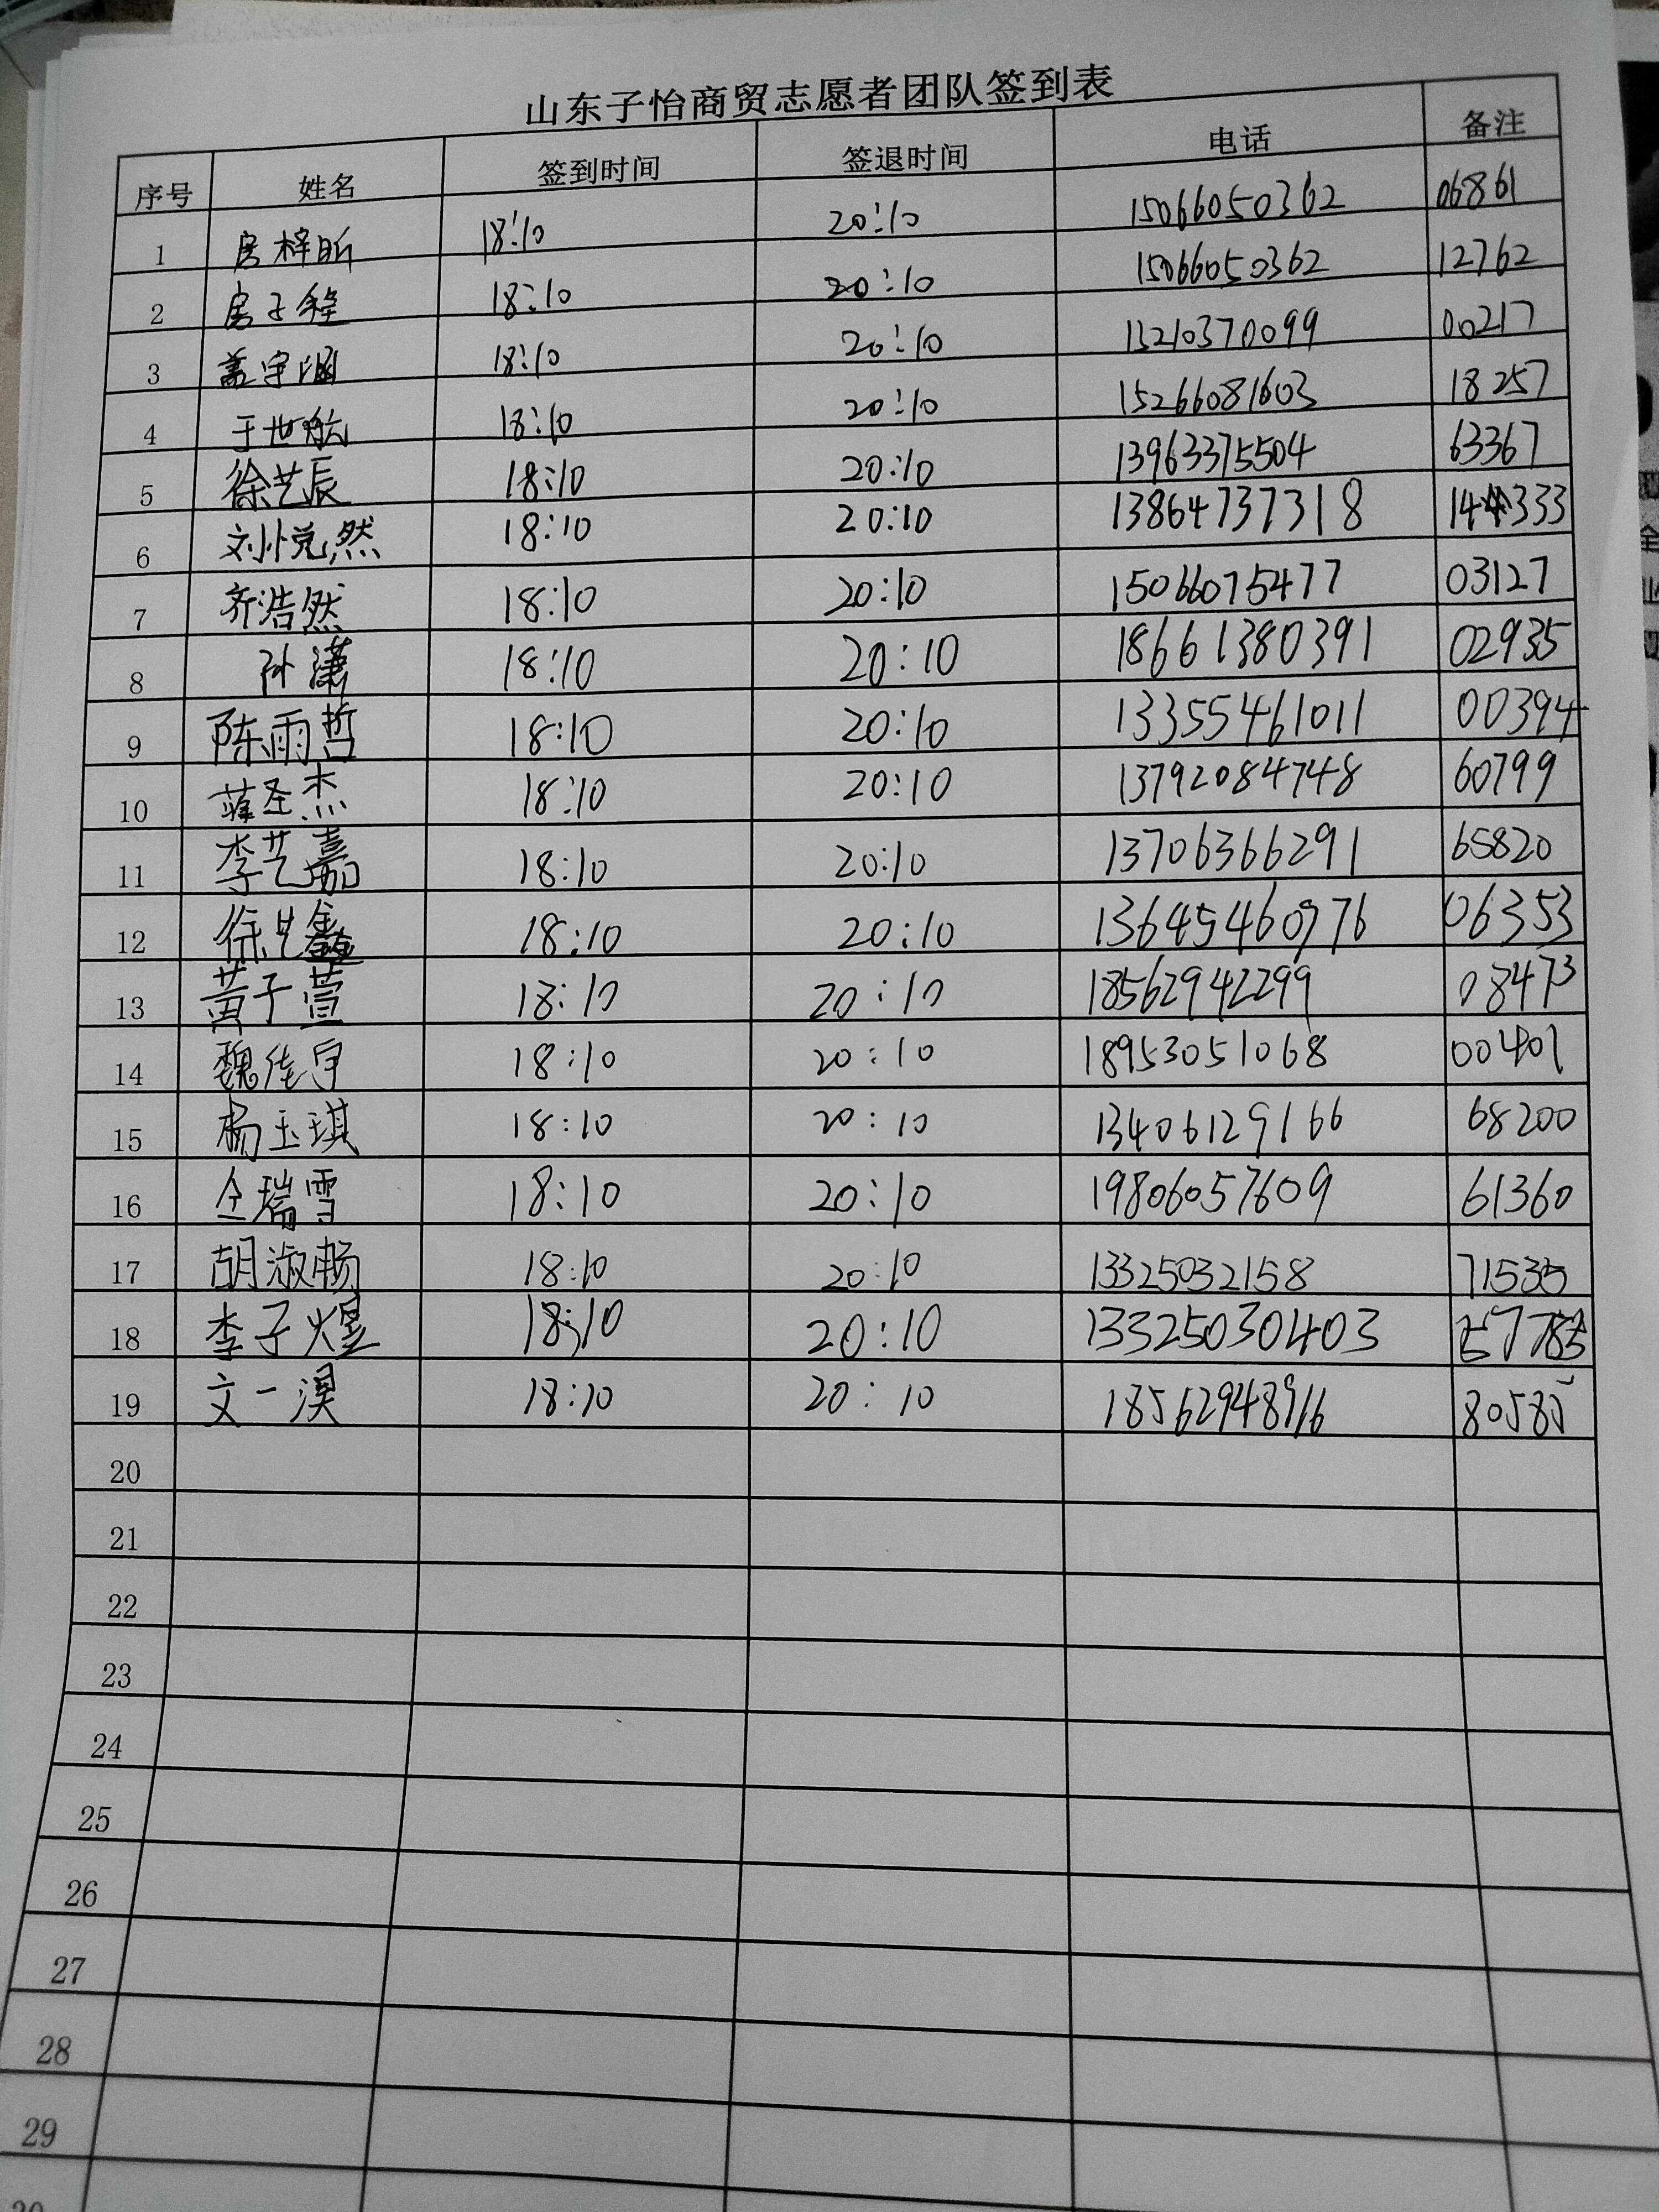 山东子怡商贸志愿者团队签到表
序号 姓名 签到时间 签退时间 电话 备注
1 房梓昕 18:10 20:10 15066050362 06861
2 房子程 18:10 20:10 15066050362 12762
3 盖宇涵 18:10 20:10 15210370099 00217
4 于世航 18:10 20:10 15266081603 18257
5 徐艺辰 18:10 20:10 13963375504 63367
6 刘悦然 18:10 20:10 13864737318 333
7 齐浩然 18:10 20:10 15066075477 03127
8 孙潇 18:10 20:10 18661380391 02935
9 陈雨哲 18:10 20:10 13355461011 00394
10 薛圣杰 18:10 20:10 13792084748 60799
11 李艺嘉 18:10 20:10 13706366291 65820
12 徐艺鑫 18:10 20:10 13645460976 06353
13 黄子萱 18:10 20:10 18562942299 08473
14 魏佳宇 18:10 20:10 18953051068 00401
15 杨玉琪 18:10 20:10 13406129166 68200
16 仝瑞雪 18:10 20:10 19806057609 61360
17 胡淑畅 18:10 20:10 13325032158 71535
18 李子煜 18:10 20:10 133250301403
19 文一淏 18:10 20:10 18562948916 80585
20
21
22
23
24
25
26
27
28
29